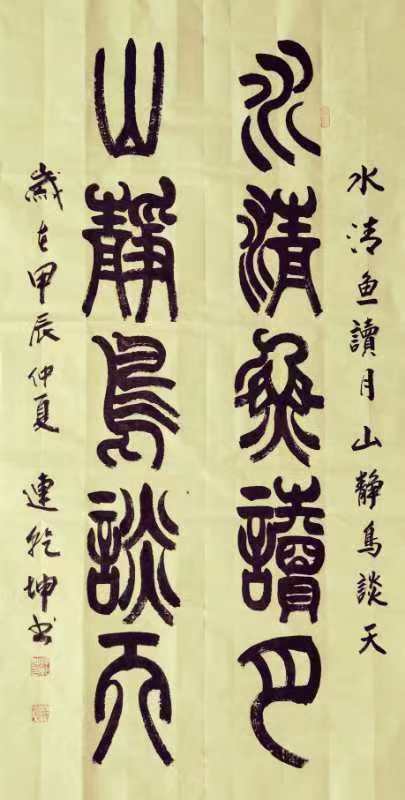 水清鱼讀月山靜鳥談天
水清魚讀月
山靜鳥談天
歲在甲辰仲夏 連乾坤书